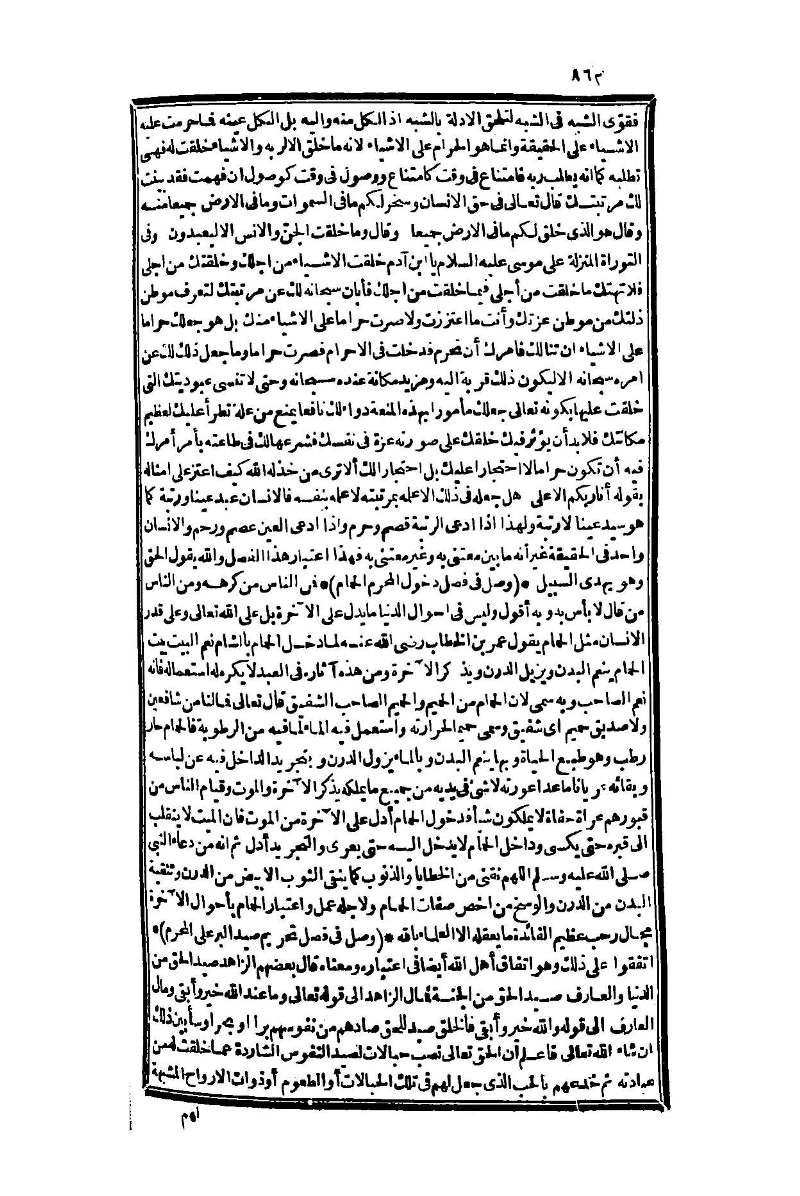 ٨٦٣
فقوى الشبه فى الشبه لتلحق الادلة بالشبه اذ الكل منه واليه بل الكل عينه فما حرمت عليه
الاشياء على الحقيقة وانما هو الحرام على الاشياء لانه ما خلق الا لربه والاشياء خلقت له فهى
تطلبه كما انه يطلب ربه فامتناع فى وقت كامتناع ووصول فى وقت كوصول ان فهمت فقد بينت
لك مرتبتك قال تعالى فى حق الانسان وسخر لكم ما فى السموات وما فى الارض جميعا منه
وقال هو الذى خلق لكم ما فى الارض جميعا وقال وما خلقت الجن والانس الا ليعبدون وفى
التوراة المنزلة على موسى عليه السلام يا ابن آدم خلقت الاشياء من اجلك وخلقتك من اجلى
فلا تهتك ما خلقت من أجلى فيما خلقت من اجلك فأبان سبحانه لك عن مرتبتك لتعرف موطن
ذلتك من موطن عزتك وأنت ما اعتززت ولا صرت حراما على الاشياء منك بل هو جعلك حراما
على الاشياء ان تنالك فامرك أن تحرم فدخلت فى الاحرام فصرت حراما وما جعل ذلك لك عن
امره سبحانه الا ليكون ذلك قربة اليه ومزيد مكانة عنده سبحانه وحتى لا تنسى عبوديتك التى
خلقت عليها بكونه تعالى جعلك مأمورا بهذه المنعة دواء لك نافعا يمنع من علة تطرأ عليك لعظيم
مكانتك فلا بد أن يؤثر فيك خلقك على صورته عزة فى نفسك فشرع لك فى طاعته بأمر أمرك
فيه أن تكون حراما لا احتجارا عليك بل احتجارا لك ألا ترى من خذله الله كيف اعتز على امثاله
بقوله أنا ربكم الاعلى هل جعله فى ذلك الا علمه بمرتبته لا علمه بنفسه فالانسان عبد عينا ورتبة كما
هو سيد عينا لا رتبة ولهذا اذا ادعى الرتبة قصم وحرم واذا ادعى العين عصم ورحم والانسان
واحد فى الحقيقة غير أنه ما بين معتنى به وغير معتنى به فهذا اعتبار هذا الفصل والله يقول الحق
وهو يهدى السبيل *(وصل فى فصل دخول المحرم الحمام)* فمن الناس من كرهه ومن الناس
من قال لا بأس به وبه أقول وليس فى احوال الدنيا ما يدل على الآخرة بل على الله تعالى وعلى قدر
الانسان مثل الحمام يقول عمر بن الخطاب رضى الله عنه لما دخل الحمام بالشام نعم البيت بيت
الحمام ينعم البدن ويزيل الدرن ويذكر الآخرة ومن هذه آثاره فى العبد لا يكره له استعماله فانه
نعم الصاحب وبه سمى لان الحمام من الحميم والحميم الصاحب الشفيق قال تعالى فما لنا من شافعين
ولا صديق حميم اى شفيق وسمى حميم الحرارته واستعمل فيه الماء لما فيه من الرطوبة فالحمام حار
رطب وهو طبع الحياة وبها ينعم البدن وبالماء يزول الدرن وبتجريد الداخل فيه عن لباسه
وبقائه عريانا ما عدا عورته لا شئ فى يديه من جميع ما يملكه يذكر الآخرة والموت وقيام الناس من
قبورهم عراة حفاة لا يملكون شيأ فدخول الحمام أدل على الآخرة من الموت فان الميت لا ينقلب
الى قبره حتى يكسى وداخل الحمام لا يدخل اليه حتى يعرى والتجريد أدل ثم انه من دعاء النبى
صلى الله عليه وسلم اللهم نقنى من الخطايا والذنوب كما ينقى الثوب الابيض من الدرن وتنقية
البدن من الدرن والوسخ من اخص صفات الحمام ولاجله عمل واعتبار الحمام بأحوال الآخرة
مجال رحب عظيم الفائدة ما يعقله الا العلماء بالله *(وصل فى فصل تحريم صيد البر على المحرم)*
اتفقوا على ذلك وهو اتفاق أهل الله أيضا فى اعتباره ومعناه قال بعضهم الزاهد صيد الحق من
الدنيا والعارف صيد الحق من الجنة فمال الزاهد الى قوله تعالى وما عند الله خير وأبقى ومال
العارف الى قوله والله خير وأبقى فالخلق صيد للحق صادهم من نفوسهم برا او بحرا وسأبين ذلك
ان شاء الله تعالى فاعلم أن الحق تعالى نصب حبالات لصيد النفوس الشاردة عما خلقت له من
عبادته ثم خدعهم بالحب الذى جعل لهم فى تلك الحبالات أو الطعوم أو ذوات الارواح المشبهة